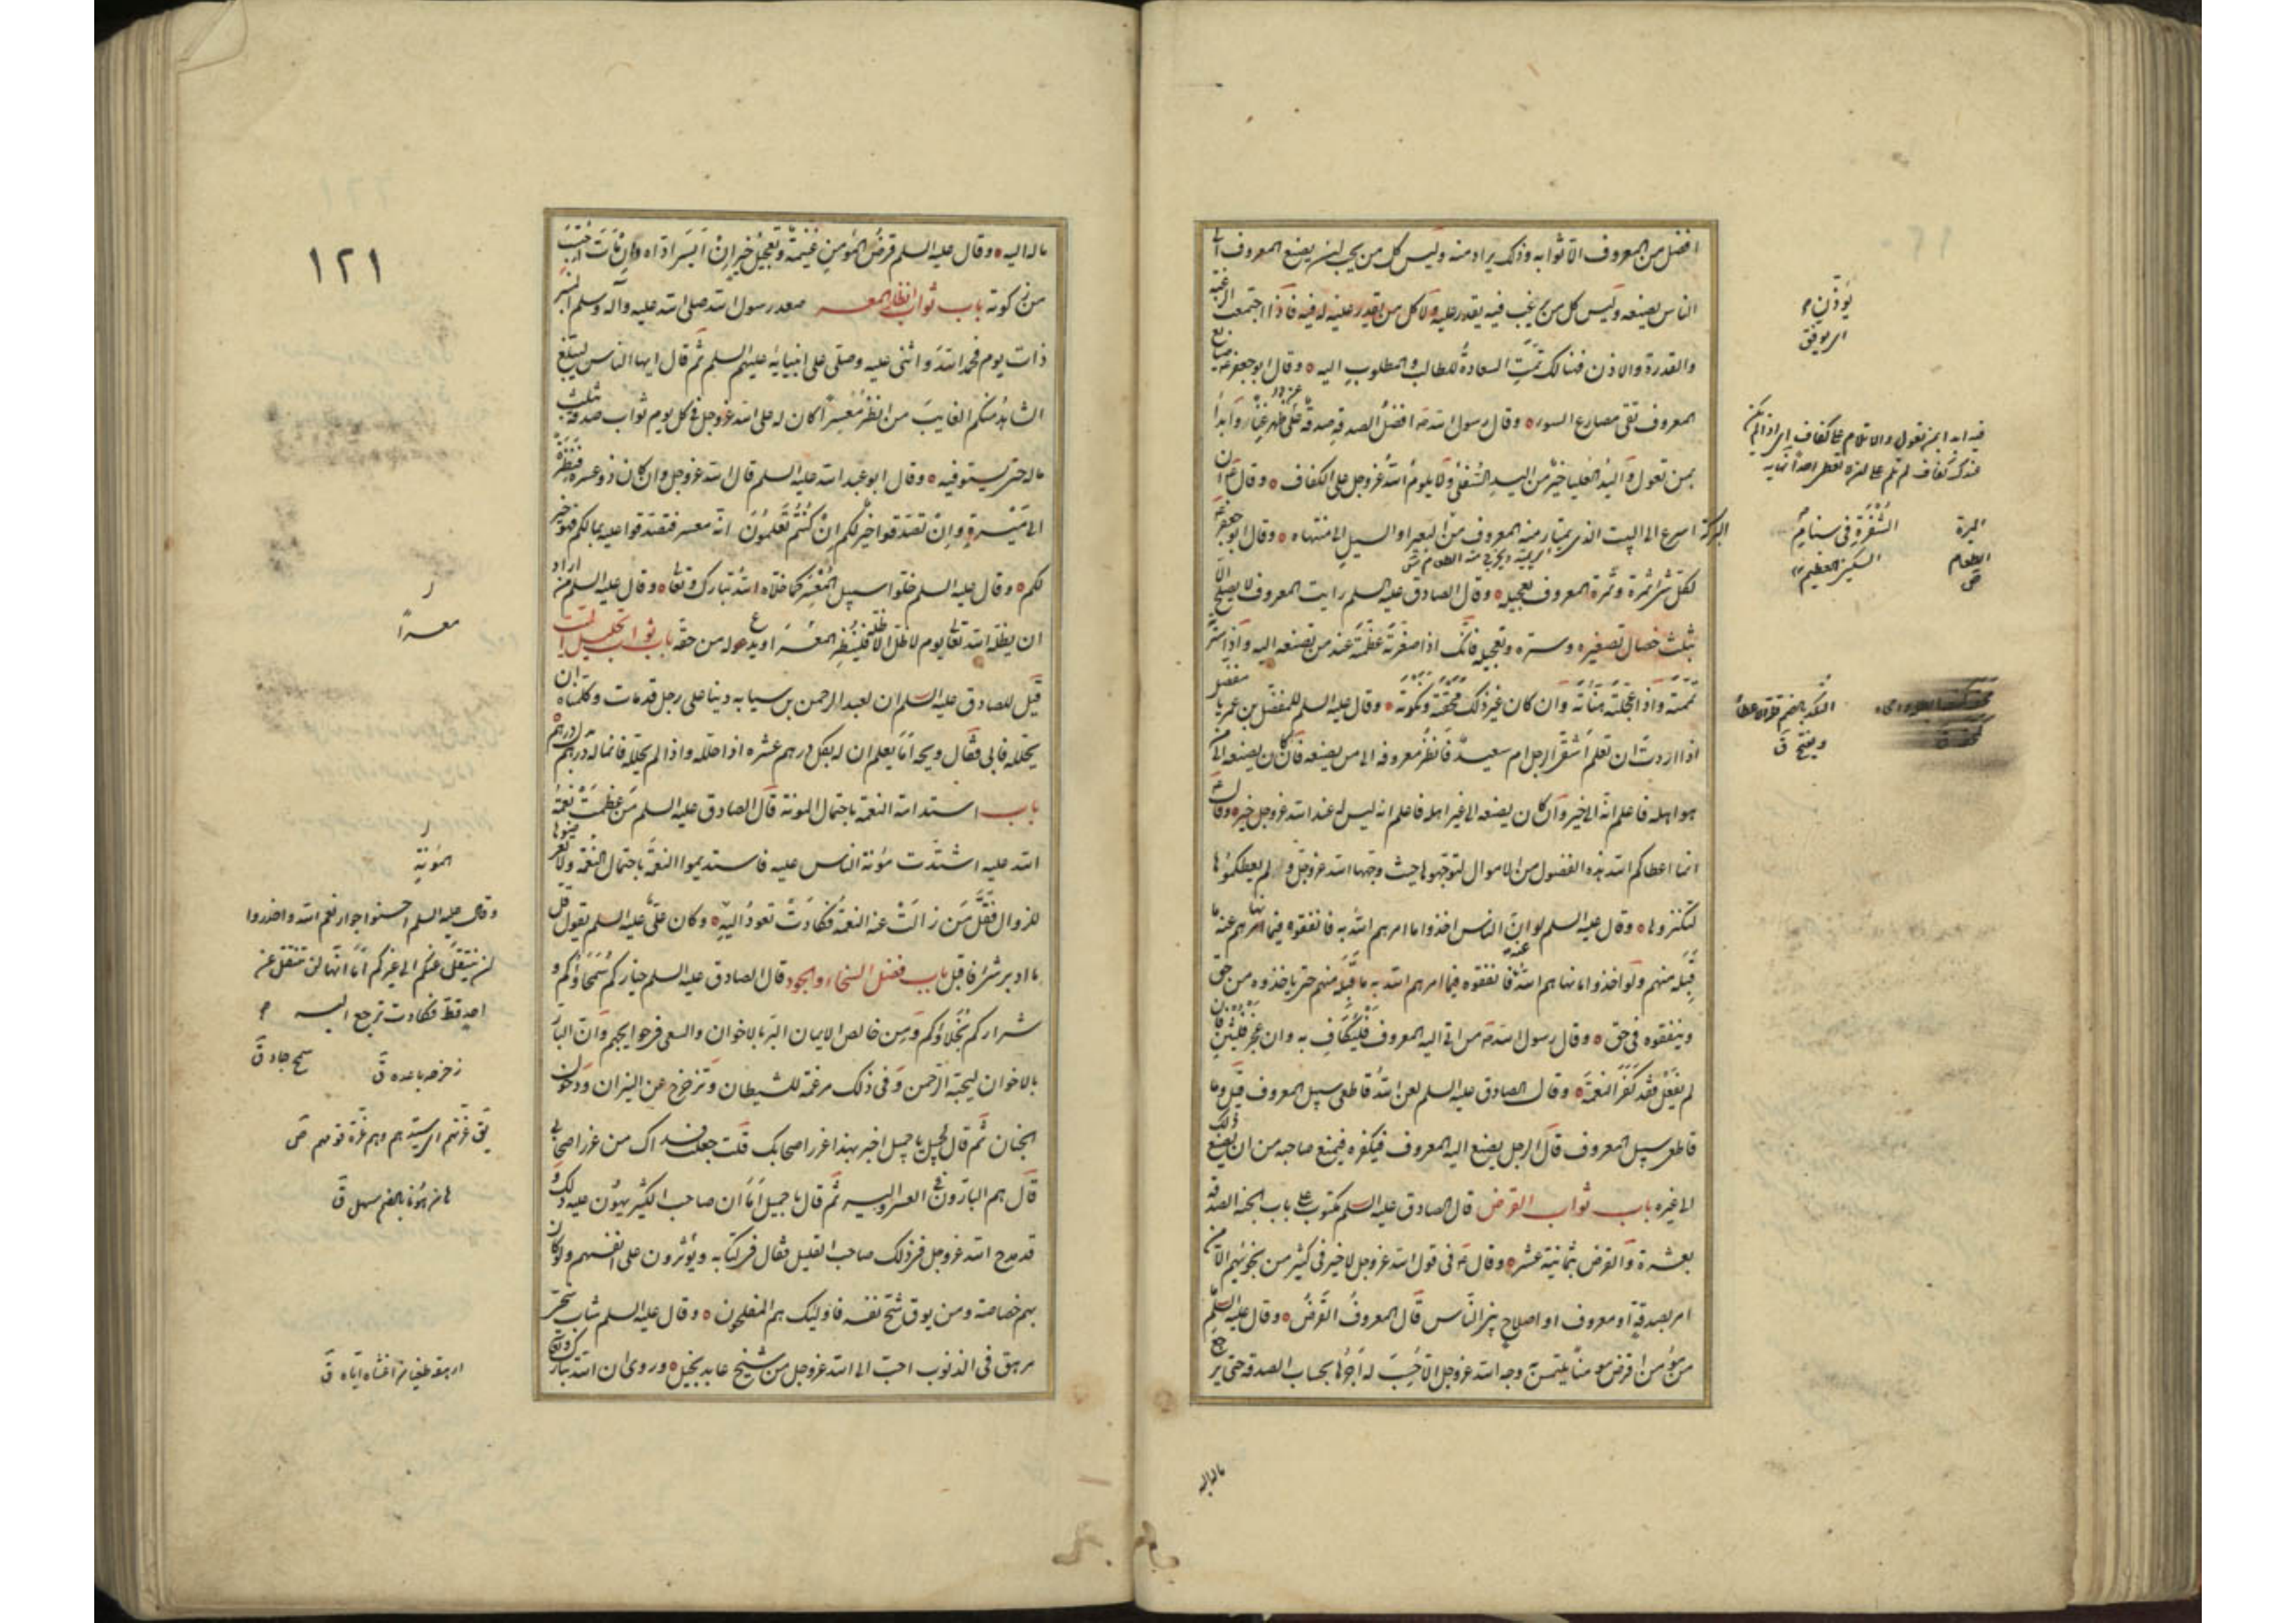 افضل من المعروف الا ثوابه وذلك يراد منه وليس كل من يحب ان يصنع المعروف الى
الناس يصنعه وليس كل من يرغب فيه يقدر عليه ولا كل من يقدر عليه يؤذن له فيه فاذا اجتمعت الرغبة
والقدرة والاذن فهنالك تمت السعادة للطالب والمطلوب اليه وقال ابو جعفر ع صنايع
المعروف تقى مصارع السوء وقال رسول الله ص افضل الصدقة صدقة على ظهر غنى وابدأ
بمن تعول واليد العليا خير من اليد السفلى ولا يلوم الله عز وجل على الكفاف وقال ع ان
البركة اسرع الى البيت الذى يمتار منه المعروف من الشفرة فى سنام البعير او السيل الى منتهاه وقال ابو جعفر ع
لكل شئ ثمرة وثمرة المعروف تعجيله وقال الصادق عليه السلم رايت المعروف لا يصلح الا
بثلث خصال تصغيره وستره وتعجيله فانك اذا صغرته عظمته عند من تصنعه اليه واذا سترته
تممته واذا عجلته هناته وان كان غير ذلك محقته ونكدته وقال عليه السلم للمفضل بن عمر يا مفضل
اذا اردت ان تعلم اشقى الرجل ام سعيد فانظر معروفه الى من يصنعه فان كان يصنعه الى من
هو اهله فاعلم انه الى خير وان كان يصنعه الى غير اهله فاعلم انه ليس له عند الله عز وجل خير وقال ع
انما اعطاكم الله هذه الفضول من الاموال لتوجهوها حيث وجهها الله عز وجل ولم يعطكموها
لتكنزوها وقال عليه السلم لو ان الناس اخذوا ما امرهم الله به فانفقوه فيما نهاهم عنه ما
قبله منهم ولو اخذوا ما نهاهم الله عنه فانفقوه فيما امرهم الله به ما قبله منهم حتى ياخذوه من حق
وينفقوه فى حق وقال رسول الله ص من اتى اليه المعروف فليكاف به وان عجز فليثن فان
لم يفعل فقد كفر النعمة وقال الصادق عليه السلم لعن الله قاطعى سبيل المعروف قيل وما
قاطعى سبيل المعروف قال الرجل يصنع اليه المعروف فيكفره فيمنع صاحبه من ان يصنع ذلك
الى غيره باب ثواب القرض قال الصادق عليه السلم مكتوب على باب الجنة الصدقة
بعشرة والقرض بثمانية عشر وقال ع فى قول الله عز وجل لا خير فى كثير من نجويهم الا من
امر بصدقة او معروف او اصلاح بين الناس قال المعروف القرض وقال عليه السلم ما
من مؤمن اقرض مومنا يلتمس به وجه الله عز وجل الا حسب له اجرها بحساب الصدقة حتى يرجع
ماله اليه
يؤذن
اى يوفق
الميرة
الطعام
ص
الشفرة فى سنام
السكين العظيم
ويفتح ق
١٢١
ماله اليه وقال عليه السلم قرض المؤمن غنيمة وتعجيل خير ان ايسر اداه وان مات احتسب
من زكوته باب ثواب انظار المعسر صعد رسول الله صلى الله عليه وآله وسلم المنبر
ذات يوم فحمد الله واثنى عليه وصلى على انبيائه عليهم السلم ثم قال ايها الناس ليبلغ
الشاهد منكم الغايب من انظر معسرا كان له على الله عز وجل فى كل يوم ثواب صدقة بمثل
ماله حتى يستوفيه وقال ابو عبد الله عليه السلم قال الله عز وجل وان كان ذو عسرة فنظرة
الى ميسرة وان تصدقوا خير لكم ان كنتم تعلمون انه معسر فتصدقوا عليه بمالكم فهو خير
لكم وقال عليه السلم خلوا سبيل المعسر كما خلاه الله تبارك وتعالى وقال عليه السلم من اراد
ان يظله الله تعالى يوم لا ظل الا ظله فلينظر المعسر او يدع له من حقه باب ثواب تحليل الميت
قيل للصادق عليه السلم ان لعبد الرحمن بن سيابه دينا على رجل قد مات وكلمناه ان
يحلله فابى فقال ويحه اما يعلم ان له بكل درهم عشره اذا حلله واذا لم يحلله فانما له درهم بدل درهم
باب استدامة النعمة باحتمال المونة قال الصادق عليه السلم من عظمت نعمة
الله عليه اشتدت مؤنة الناس عليه فاستديموا النعمة باحتمال المؤنة ولا تعرضوها
للزوال فقل من زالت عنه النعمة فكادت تعود اليه وكان على عليه السلم يقول قل
ما ادبر شئ فاقبل باب فضل السخاء والجود قال الصادق عليه السلم خياركم سمحاؤكم و
شراركم بخلاؤكم ومن خالص الايمان البر بالاخوان والسعى فى حوايجهم وان البار
بالاخوان ليحبه الرحمن وفى ذلك مرغمة للشيطان وتزحزح عن النيران ودخول
الجنان ثم قال لجميل يا جميل اخبر بهذا غرر اصحابك قلت جعلت فداك من غرر اصحابى
قال هم البارون فى العسر واليسر ثم قال يا جميل اما ان صاحب الكثير يهون عليه ذلك و
قد مدح الله عز وجل فى ذلك صاحب القليل فقال فى كتابه ويؤثرون على انفسهم ولو كان
بهم خصاصة ومن يوق شح نفسه فاولئك هم المفلحون وقال عليه السلم شاب سخى
مرهق فى الذنوب احب الى الله عز وجل من شيخ عابد بخيل وروى ان الله تبارك وتعالى
معسرا
المؤنة
وقال عليه السلم احسنوا جوار نعم الله واحذروا
ان ينتقل عنكم الى غيركم اما انها لن تنتقل عن
احد قط فكادت ترجع اليه
زحزحه باعده ق
سمح جاد ق
هان هونا بالضم سهل ق